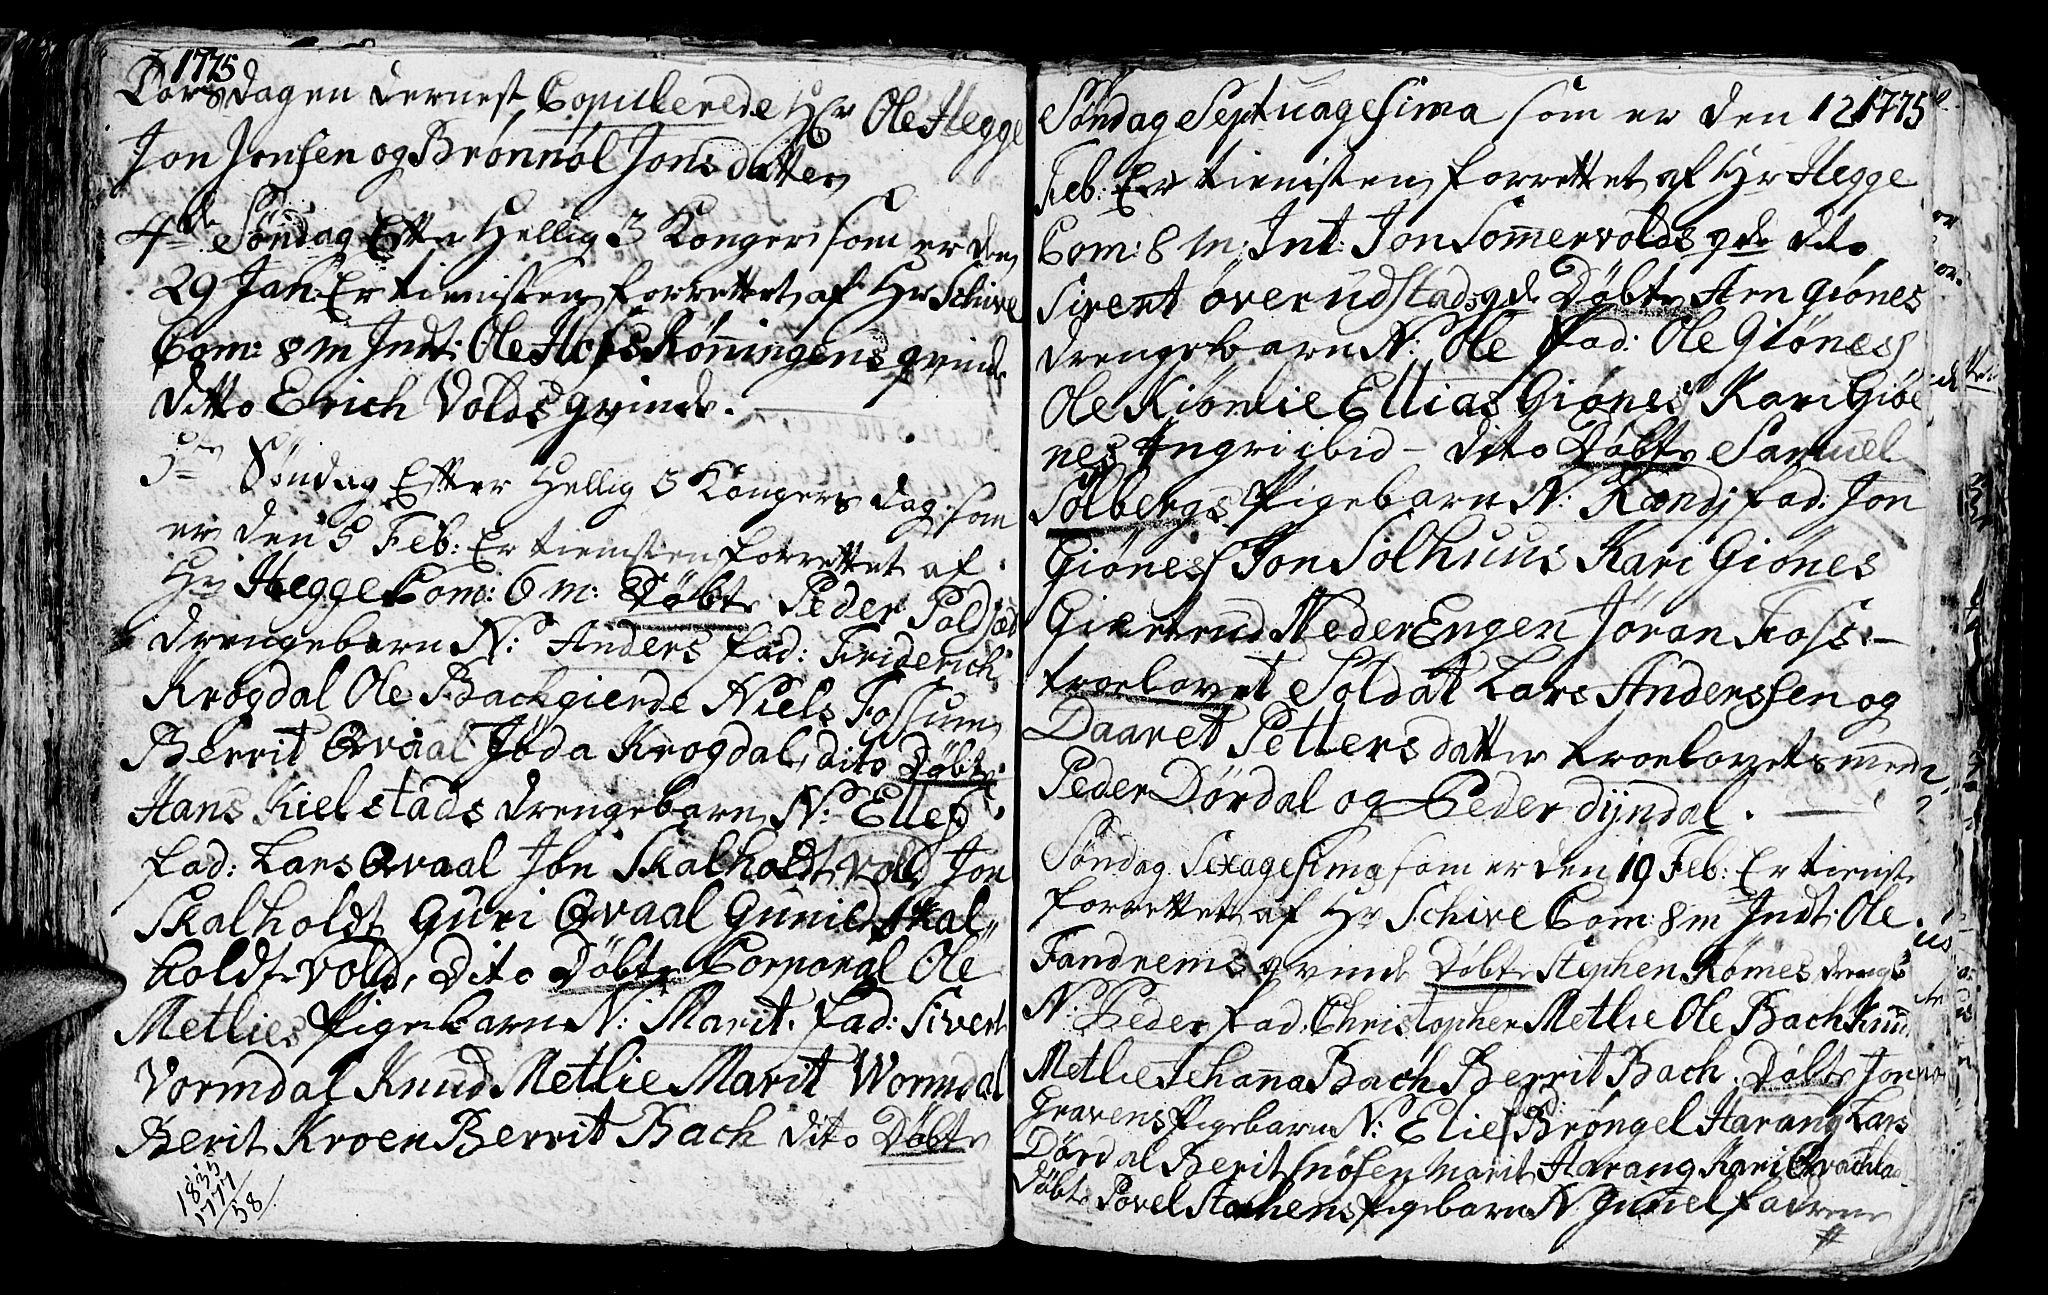 1775
Torsdagen dernest Copulerede Hr Ole Hegge
Jon Jonsen og Brønnøl Jonsdatter
4de Søndag Efter Hellig 3 Konger som er den
29 Jan: Er tienisten forrettet af Hr Schive
Com: 8 m Indt: Ole Hofs Rønningens qvinde
ditto Erich Volds qvinde.
5te Søndag Efter Hellig 3 Kongers dag som
er den 5 Feb: Er tienisten forrettet af
Hr Hegge Com: 6 m: Døbt Peder
drengebarn N: Anders fad: Friderich
Krogdal Ole Bachgierde Niels Fossum
Berrit Qvaal Joda Krogdal, dito Døbt
Hans Kielstads drengebarn N: Ellef
fad: Lars Qvaal Jon Skalholdt vold Jon
Skalholdt Guri Qvaal Gunild Skal
holdt vold, Dito Døbt Corporal Ole
Metlies Pigebarn N: Marit. fad: Sivert
Vormdal Knud Metlie Marit Wormdal
Berit Kroen Berrit Bach dito Døbt
1833
1777
58
Søndag Septuagesima som er den 12 1775
Feb: Er tienisten forrettet af Hr Hegge
Com: 8 m: Int: Jon Sommervolds qde dito
Sivent Øverudstads qde Døbt Arn Giønes
drengebarn N: Ole fad: Ole Giønes
Ole Kiømlie Ellias Giønes Kari Giøe
nes Angri ibid - dito Døbt Samuel
Solbergs Pigebarn N: Randj fad: Jon
Giønes Jon Solhuus Kari Giønes
Giertrud Neder Engen Jøran Foss. -
troelovet Soldat Lars Anderssen og
Daaret Petters datter troelovetsmend
Peder Dørdal og Peder dyndal.
Søndag Sexagesima som er den 19 Feb: Er tienist
forrettet af Hr Schive Com: 8 m Indt: Ole
Fandrems qvinde Døbt Stephen Rømes drengb
N: Peder fad: Christopher Metlie Ole Bach Knud
Metlie Jehanna Bach Berrit Bach. Døbt Jon
Gravens Pigebarn N: Elie f Brøngel Harang Lars
Dørdal Berit Snøsen marit Harang Kari
Døbt Povel Stachens Pigebarn N Guniel fadrene
#